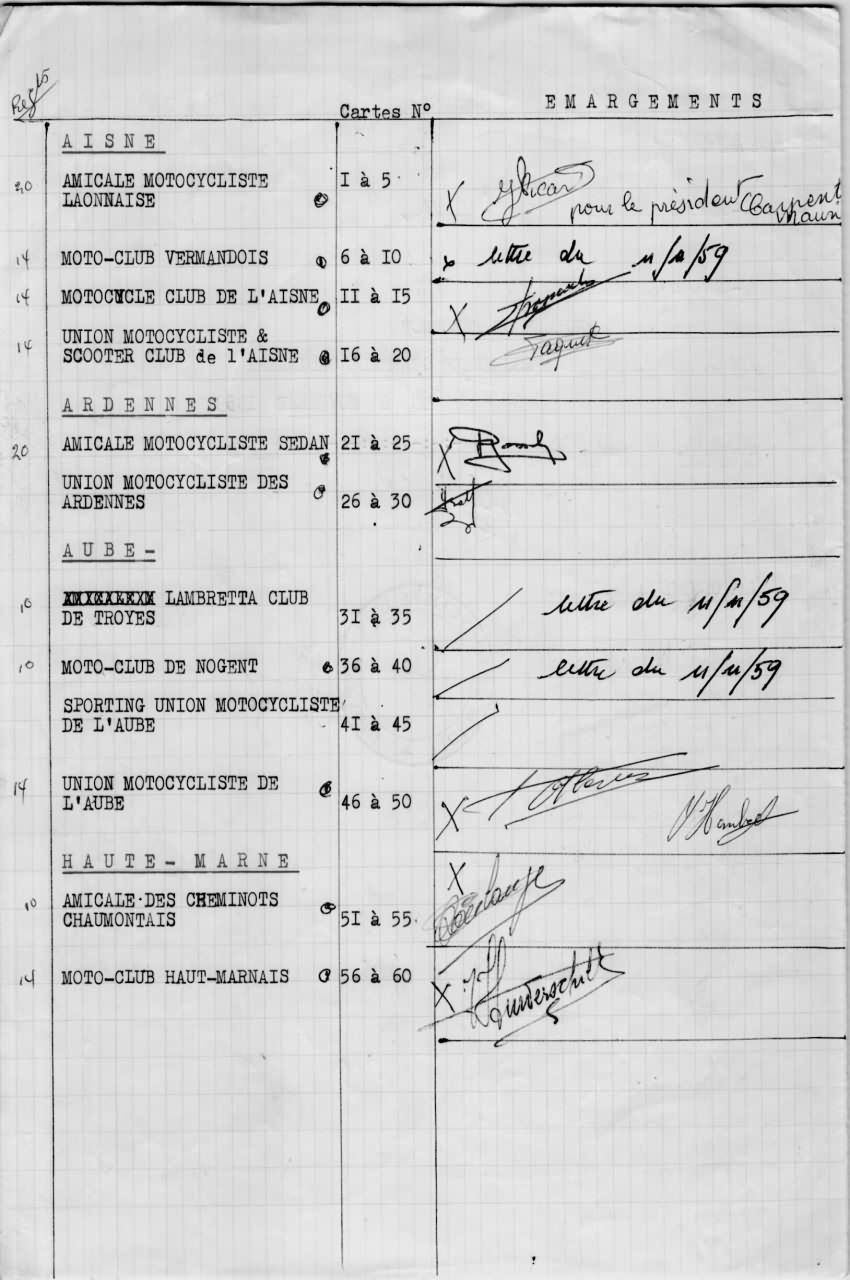 Cartes N° EMARGEMENTS
AISNE
20 AMICALE MOTOCYCLISTE I à 5
LAONNAISE X pour le président
14 MOTO-CLUB VERMANDOIS 6 à IO x lettre du 11/11/59
14 MOTOCYCLE CLUB DE L'AISNE II à I5 X
UNION MOTOCYCLISTE &
14 SCOOTER CLUB de l'AISNE I6 à 20 Paquet
ARDENNES
20 AMICALE MOTOCYCLISTE SEDAN 2I à 25 X
UNION MOTOCYCLISTE DES
ARDENNES 26 à 30
AUBE-
10 LAMBRETTA CLUB lettre du 11/11/59
DE TROYES 3I à 35
10 MOTO-CLUB DE NOGENT 36 à 40 lettre du 11/11/59
SPORTING UNION MOTOCYCLISTE
DE L'AUBE 4I à 45
14 UNION MOTOCYCLISTE DE
L'AUBE 46 à 50 X
HAUTE-MARNE
10 AMICALE DES CHEMINOTS X
CHAUMONTAIS 5I à 55
14 MOTO-CLUB HAUT-MARNAIS 56 à 60 X